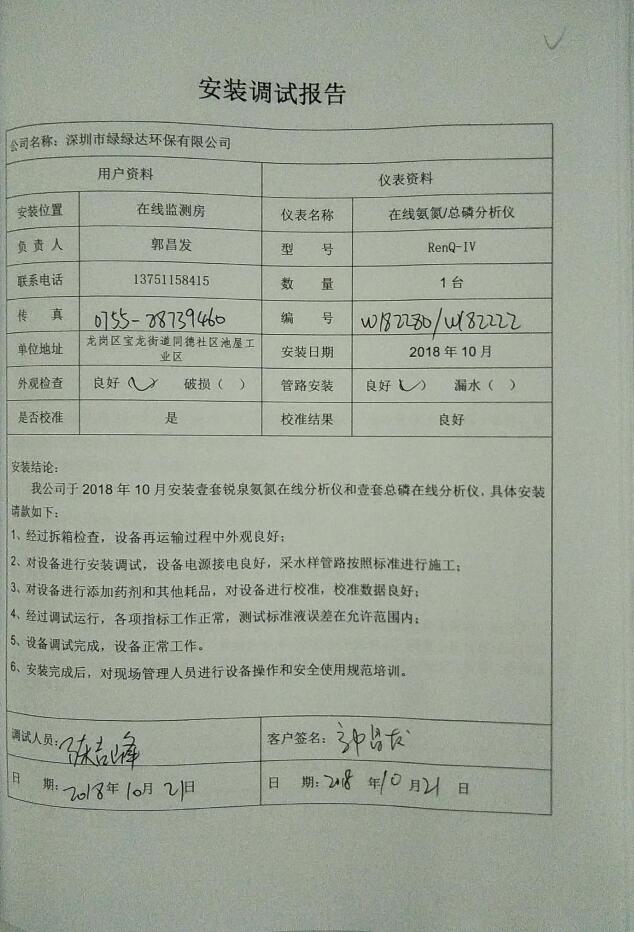 安装调试报告
公司名称：深圳市绿绿达环保有限公司
用户资料 仪表资料
安装位置 在线监测房 仪表名称 在线氨氮/总磷分析仪
负责人 郭昌发 型 号 RenQ-IV
联系电话 13751158415 数 量 1台
传 真 0755-28739460 编 号 W182280/W182222
单位地址 龙岗区宝龙街道同德社区池屋工
业区 安装日期 2018年10月
外观检查 良好（✓） 破损（ ） 管路安装 良好（✓） 漏水（ ）
是否校准 是 校准结果 良好
安装结论：
我公司于2018年10月安装壹套锐泉氨氮在线分析仪和壹套总磷在线分析仪，具体安装
请款如下：
1、经过拆箱检查，设备再运输过程中外观良好；
2、对设备进行安装调试，设备电源接电良好，采水样管路按照标准进行施工；
3、对设备进行添加药剂和其他耗品，对设备进行校准，校准数据良好；
4、经过调试运行，各项指标工作正常，测试标准液误差在允许范围内；
5、设备调试完成，设备正常工作。
6、安装完成后，对现场管理人员进行设备操作和安全使用规范培训。
调试人员：陈吉峰 客户签名：
日 期：2018年10月21日 日 期：2018年10月21日